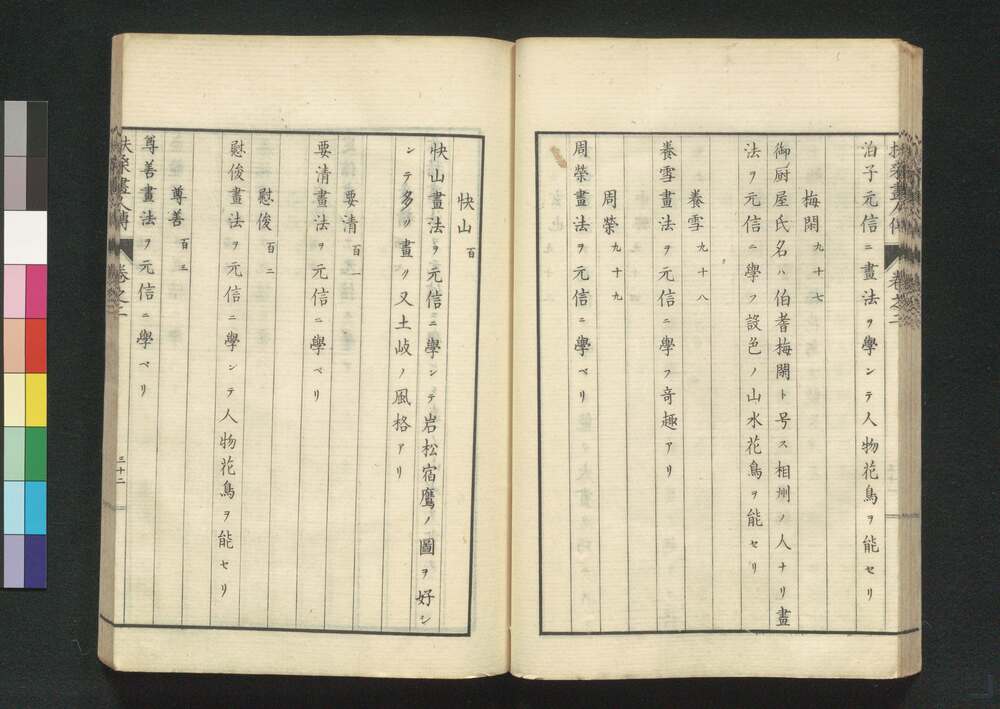 泊子元信ニ畫法ヲ學ンテ人物花鳥ヲ能セリ
梅閑 九十七
御厨屋氏名ハ伯耆梅閑ト号ス相州ノ人ナリ畫
法ヲ元信ニ學フ設色ノ山水花鳥ヲ能セリ
養雪 九十八
養雪畫法ヲ元信ニ學フ奇趣アリ
周榮 九十九
周榮畫法ヲ元信ニ學ベリ
快山 百
快山畫法ヲ元信ニ學ンテ岩松宿鷹ノ圖ヲ好ン
ンテ多ク畫ク又土岐ノ風格アリ
要清 百一
要清畫法ヲ元信ニ學ベリ
慰俊 百二
慰俊畫法ヲ元信ニ學ンテ人物花鳥ヲ能セリ
尊善 百三
尊善畫法ヲ元信ニ學ベリ
扶桑畫人傳 卷之二 三十二